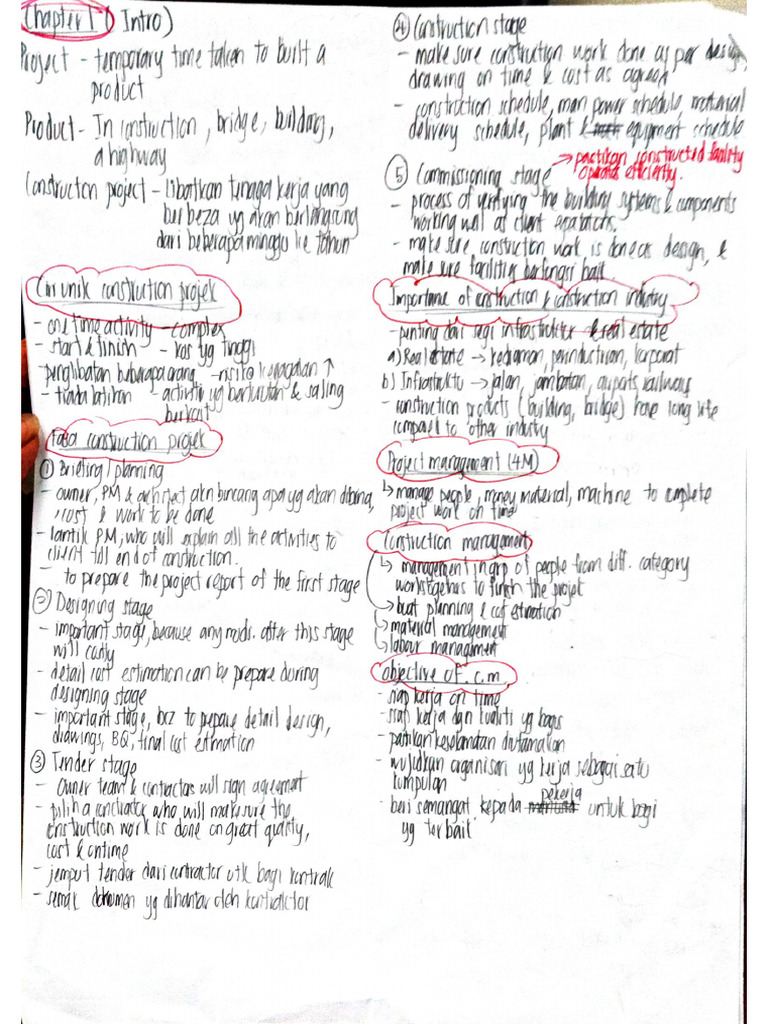 Chapter 1 (Intro)
Project - temporary time taken to built a
product
Product - In construction, bridge, building,
a highway
Construction project - Libatkan tenaga kerja yang
berbeza yg akan berlangsung
dari beberapa minggu ke tahun
Ciri unik construction projek
- one time activity - complex
- start & finish - kos yg tinggi
- penglibatan beberapa orang - risiko kegagalan ↑
- tiada latihan - activiti yg berturutan & saling
berkait
Fasa construction projek
① Briefing / planning
- owner, PM & architect akn bincang apa yg akan dibina,
cost & work to be done
- lantik PM, who will explain all the activities to
client till end of construction.
- to prepare the project report of the first stage
② Designing stage
- important stage, because any mods. after this stage
will costly
- detail cost estimation can be prepare during
designing stage
- important stage, bcz to prepare detail design,
drawings, BQ, final cost estimation
③ Tender stage
- Owner team & contractors will sign agreement
- pilih a contractor who will make sure the
construction work is done on great quality,
cost & on time
- jemput tender dari contractor utk bagi kontrak
- semak dokumen yg dihantar oleh kontraktor
④ Construction stage
- make sure construction work done as per design,
drawing on time & cost as agreed
- construction schedule, man power schedule, material
delivery schedule, plant & equipment schedule
→ pastikan constructed facility
operate efficiently.
⑤ Commissioning stage
- process of verifying the building systems & components
working well as client
- make sure construction work is done as design, &
make sure facilities berfungsi baik
Importance of construction & construction industry
- penting dari segi infrastruktur & real estate
a) Real estate → kediaman, perindustrian, korporat
b) Infrastruktu → jalan, jambatan, airports, railways
- construction products (building, bridge) have long life
compared to other industry
Project management (4M)
↳ manage people, money, material, machine to complete
project work on time
Construction management
↳ management in grp of people from diff. category
works together to finish the project
→ buat planning & cost estimation
↳ material management
↳ labour management
objective of c.m.
- siap kerja on time
- siap kerja dan kualiti yg bagus
- pastikan keselamatan diutamakan
- wujudkan organisasi yg kerja sebagai satu
kumpulan
- beri semangat kepada pekerja untuk bagi
yg terbaik